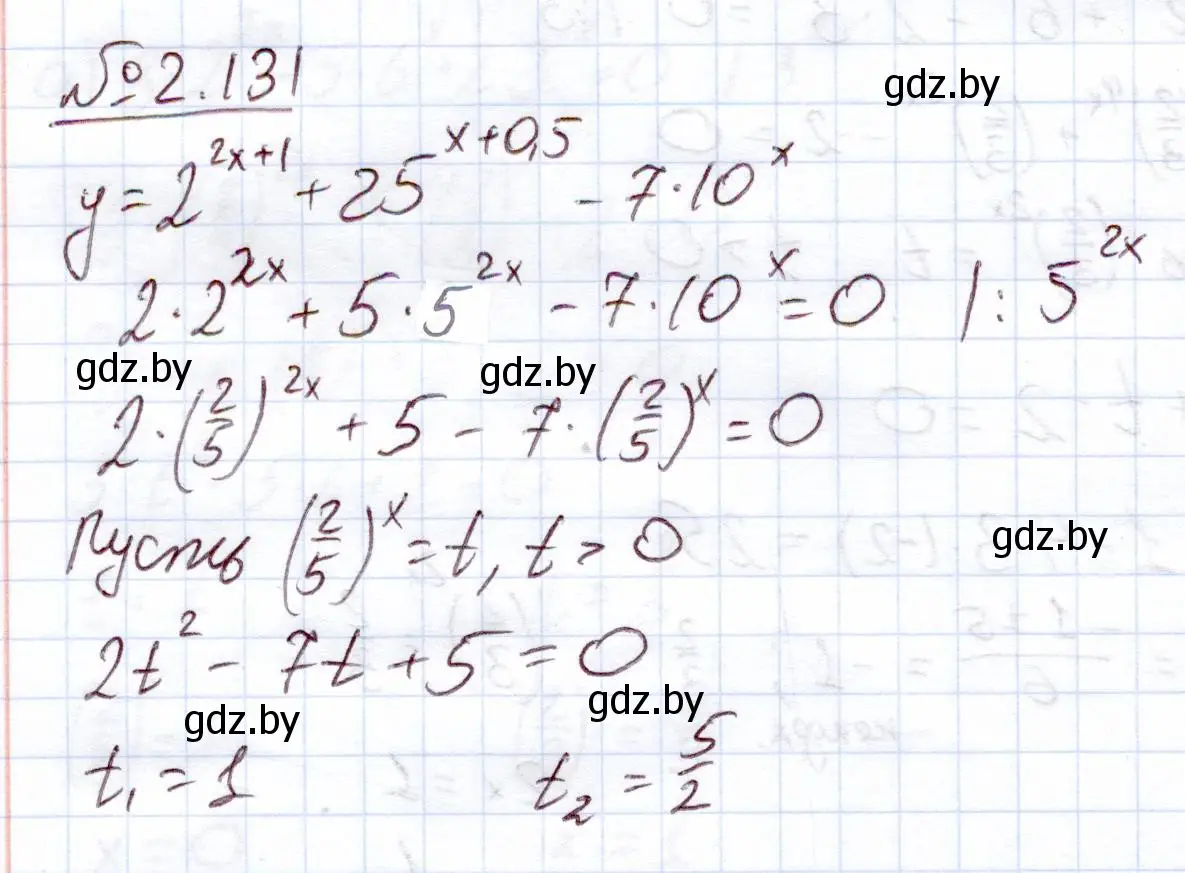 №2.131
gdz.by
y = 2^{2x+1} + 25^{x+0,5} - 7·10^x
2·2^{2x} + 5·5^{2x} - 7·10^x = 0 | : 5^{2x}
gdz.by
gdz.by
2·(2/5)^{2x} + 5 - 7·(2/5)^x = 0
Пусть (2/5)^x = t, t > 0
gdz.by
2t^2 - 7t + 5 = 0
gdz.by
gdz.by
t_1 = 1 t_2 = 5/2